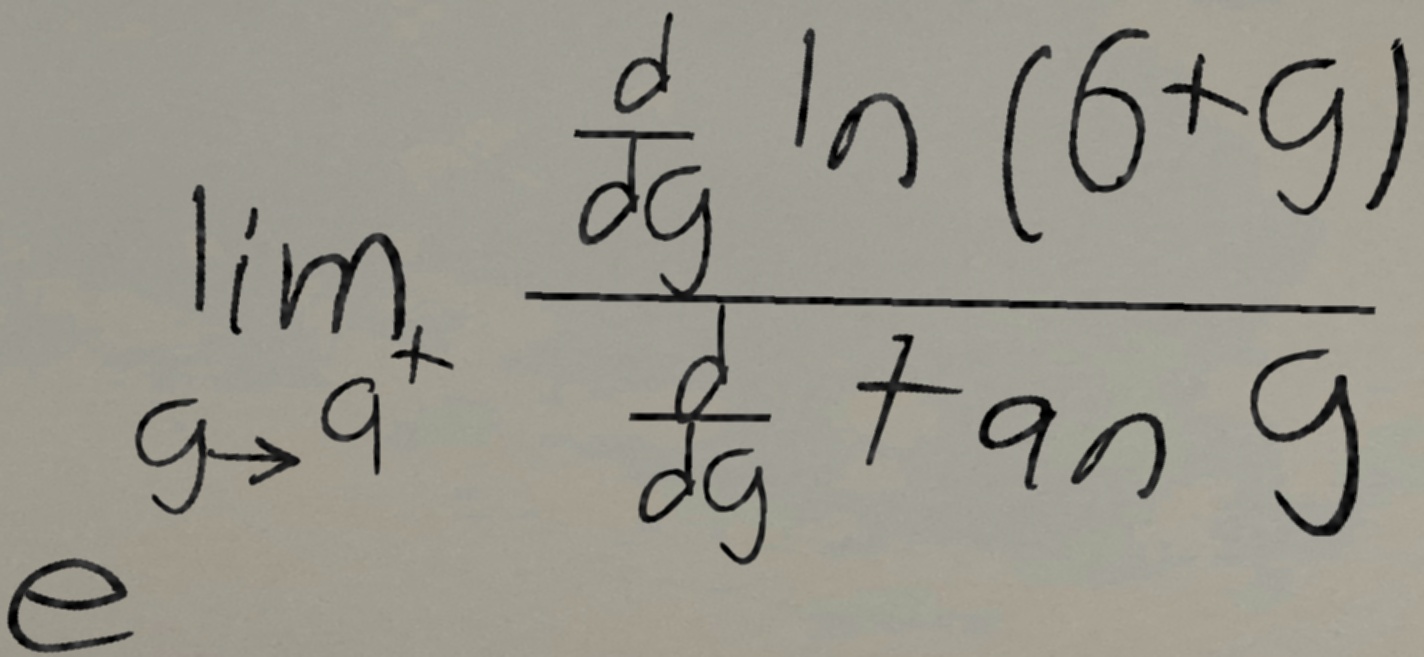 e^{\lim_{g \to 9^+} \frac{\frac{d}{dg} \ln (6+g)}{\frac{d}{dg} \tan g}}